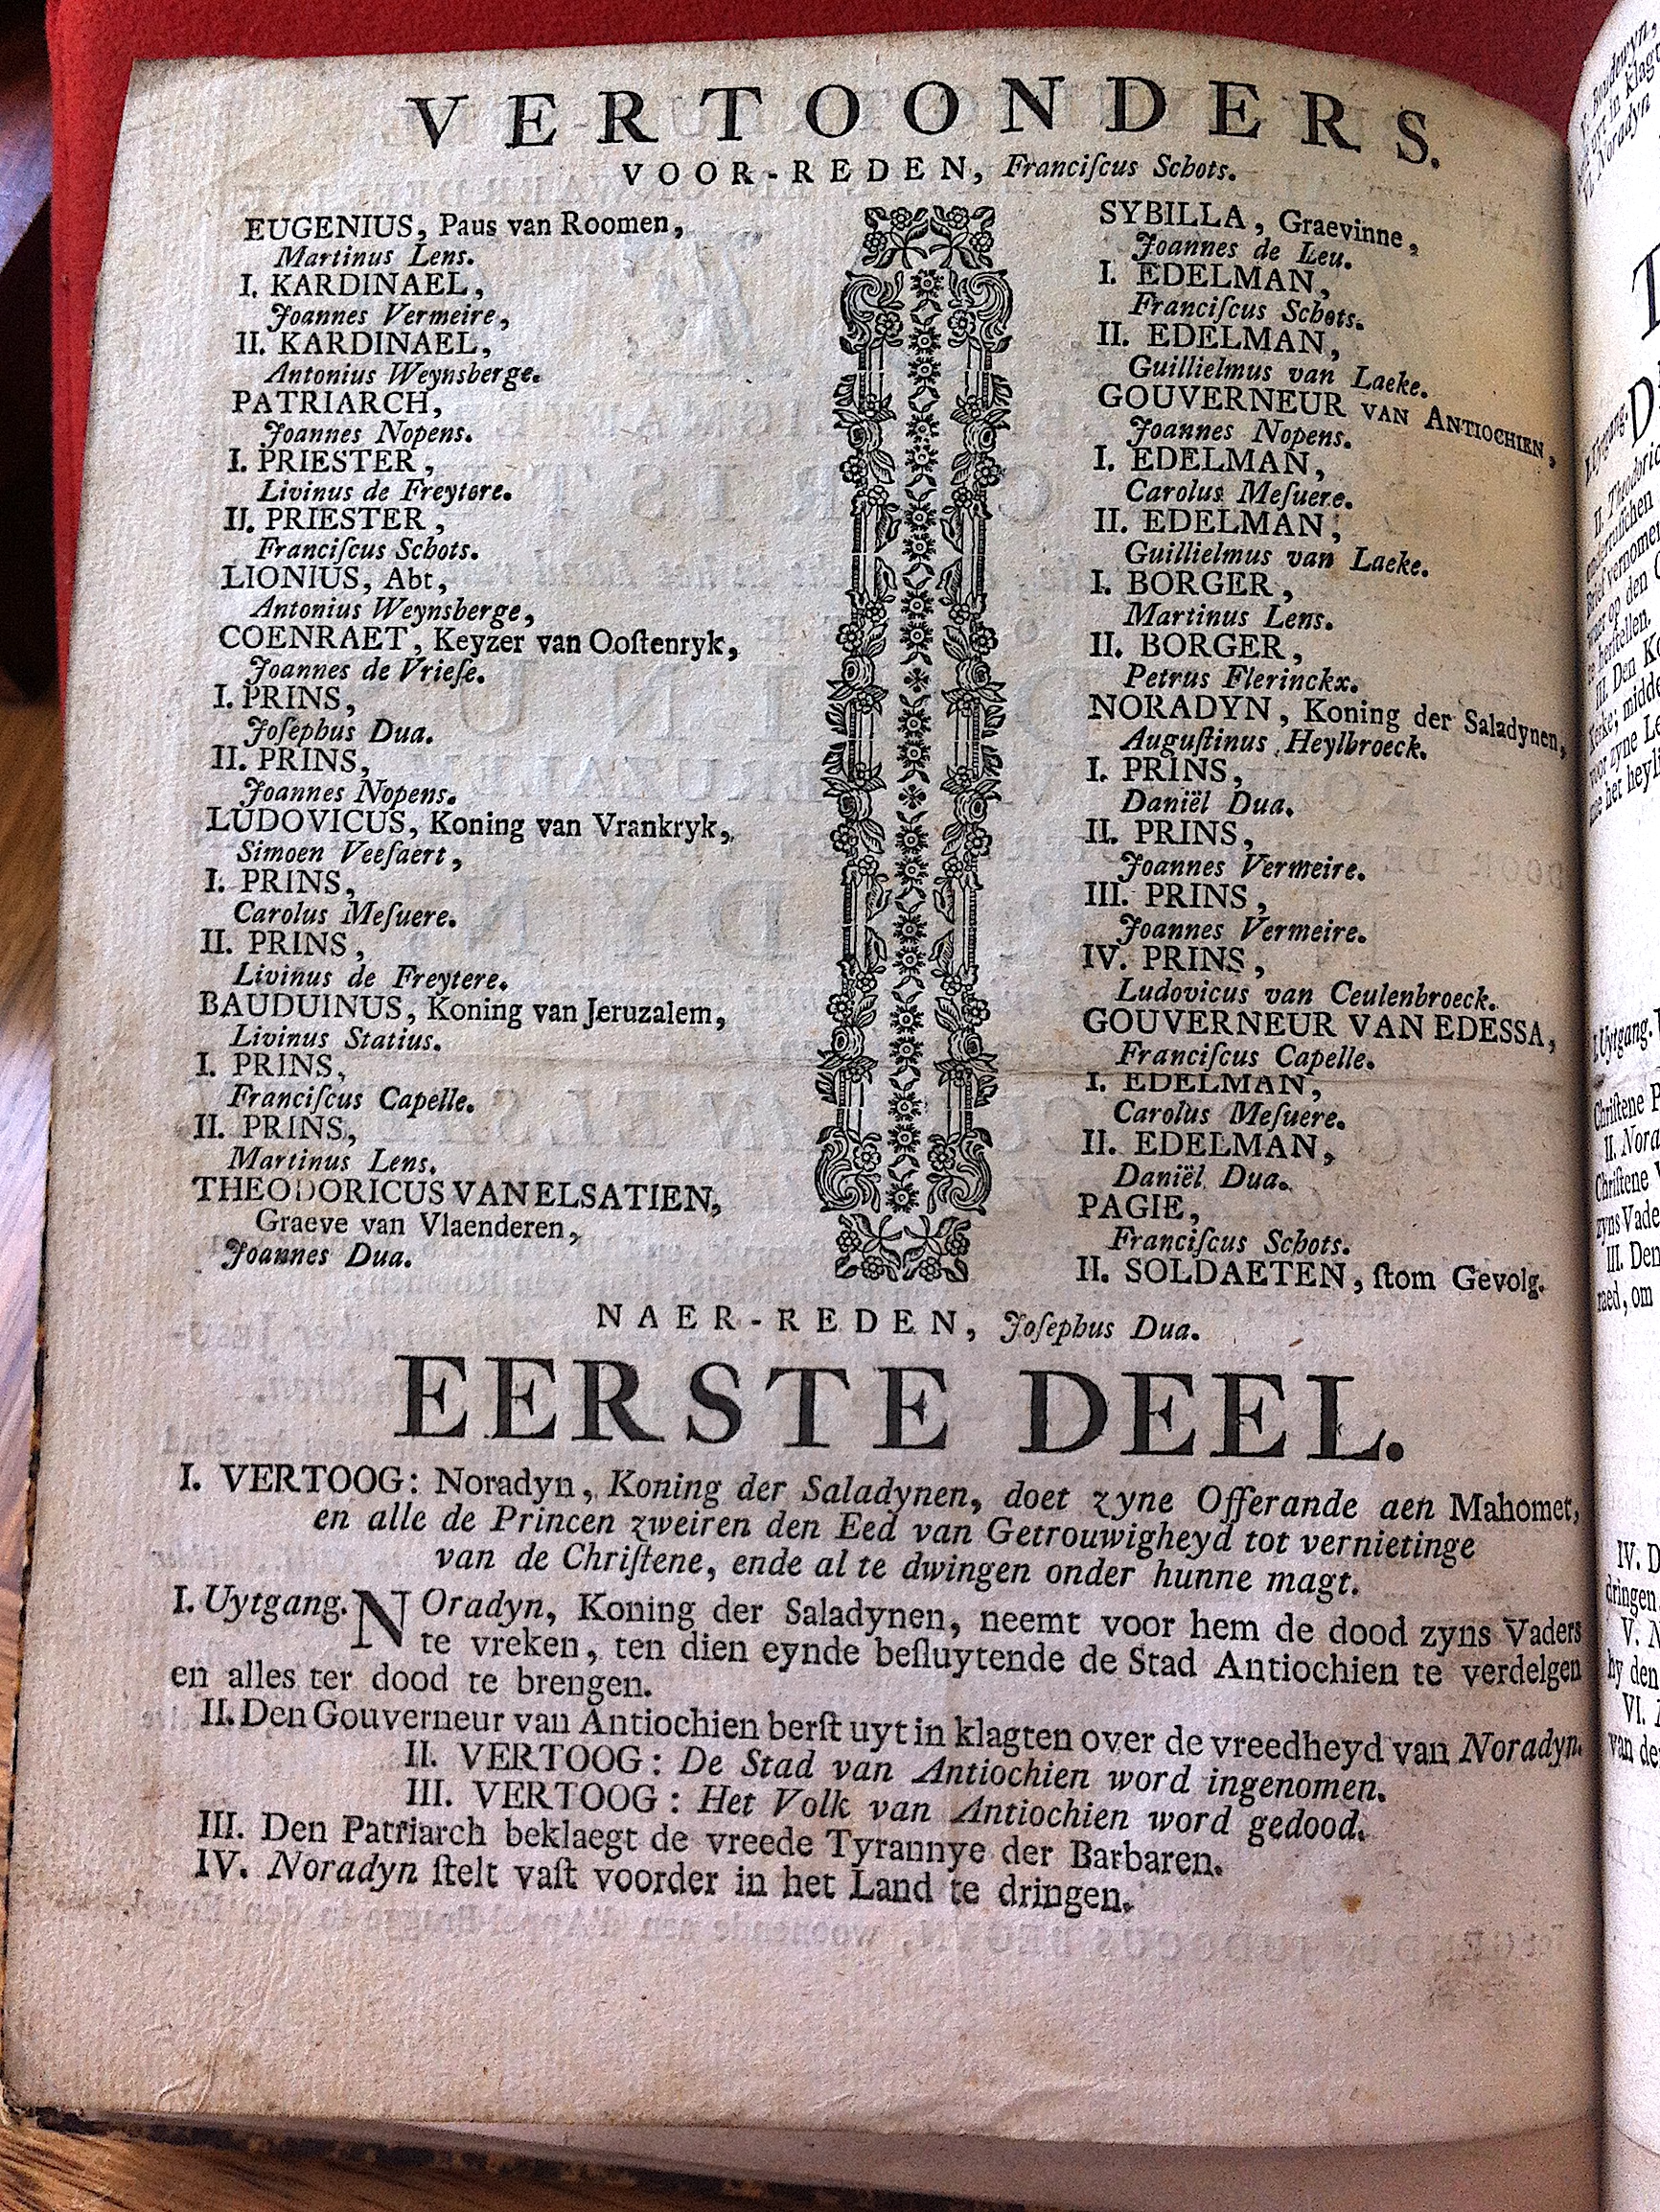 VERTOONDERS.
VOOR-REDEN, Franciſcus Schots.
EUGENIUS, Paus van Roomen,
Martinus Lens.
I. KARDINAEL,
Joannes Vermeire,
II. KARDINAEL,
Antonius Weynsberge.
PATRIARCH,
Joannes Nopens.
I. PRIESTER,
Livinus de Freytere.
II. PRIESTER,
Franciſcus Schots.
LIONIUS, Abt,
Antonius Weynsberge,
COENRAET, Keyzer van Ooſtenryk,
Joannes de Vrieſe.
I. PRINS,
Joſephus Dua.
II. PRINS,
Joannes Nopens.
LUDOVICUS, Koning van Vrankryk,
Simoen Veeſaert,
I. PRINS,
Carolus Meſuere.
II. PRINS,
Livinus de Freytere.
BAUDUINUS, Koning van Jeruzalem,
Livinus Statius.
I. PRINS,
Franciſcus Capelle.
II. PRINS,
Martinus Lens.
THEODORICUS VAN ELSATIEN,
Graeve van Vlaenderen,
Joannes Dua.
SYBILLA, Graevinne,
Joannes de Leu.
I. EDELMAN,
Franciſcus Schots.
II. EDELMAN,
Guillielmus van Laeke.
GOUVERNEUR VAN ANTIOCHIEN,
Joannes Nopens.
I. EDELMAN,
Carolus Meſuere.
II. EDELMAN,
Guillielmus van Laeke.
I. BORGER,
Martinus Lens.
II. BORGER,
Petrus Flerinckx.
NORADYN, Koning der Saladynen,
Auguſtinus Heylbroeck.
I. PRINS,
Daniël Dua.
II. PRINS,
Joannes Vermeire.
III. PRINS,
Joannes Vermeire.
IV. PRINS,
Ludovicus van Ceulenbroeck.
GOUVERNEUR VAN EDESSA,
Franciſcus Capelle.
I. EDELMAN,
Carolus Meſuere.
II. EDELMAN,
Daniël Dua.
PAGIE,
Franciſcus Schots.
II. SOLDAETEN, ſtom Gevolg.
NAER-REDEN, Joſephus Dua.
EERSTE DEEL.
I. VERTOOG: Noradyn, Koning der Saladynen, doet zyne Offerande aen Mahomet,
en alle de Princen zweiren den Eed van Getrouwigheyd tot vernietinge
van de Chriſtene, ende al te dwingen onder hunne magt.
I. Uytgang. NOradyn, Koning der Saladynen, neemt voor hem de dood zyns Vaders
te vreken, ten dien eynde beſluytende de Stad Antiochien te verdelgen
en alles ter dood te brengen.
II. Den Gouverneur van Antiochien berſt uyt in klagten over de vreedheyd van Noradyn.
II. VERTOOG: De Stad van Antiochien word ingenomen.
III. VERTOOG: Het Volk van Antiochien word gedood.
III. Den Patriarch beklaegt de vreede Tyrannye der Barbaren.
IV. Noradyn ſtelt vaſt voorder in het Land te dringen.